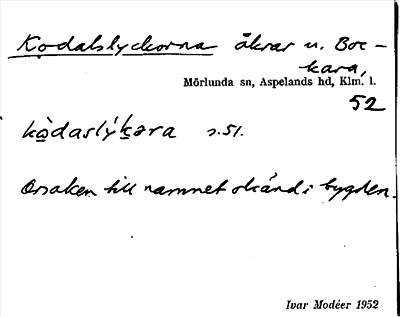 Kodalslyckorna åkrar u. Boc-
kara,
Mörlunda sn, Aspelands hd, Klm. l.
52
kòdaslýkəra s. 51.
Orsaken till namnet okänd i bygden.
Ivar Modéer 1952